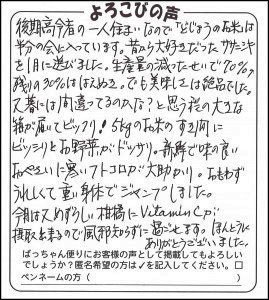 よろこびの声
後期高令者の一人住まいなので「どじょうのお米」は
半分の会に入っています。昔から大好きだったササニシキ
を1月に選びました。生産量の減ったせいで70%
残りの30%ははえぬき。でも美味しさは絶品でした。
お歳暮には間違ってるのかな?と思う程の大きな
箱が届いてビックリ! 5kgのお米のすき間に
ビッシリとお野菜がドッサリ。新鮮で味の良い
おやさいに寒いトコロが大助かり。おもわず
うれしくて重い身体でジャンプしました。
今月は又めずらしい柑橘にVitaminCが
摂取出来るので風邪知らずに過ごせます。ほんとうに
ありがとうございいました。
ばっちゃん便りにお客様の声として掲載してもよろしい
でしょうか?匿名希望の方は✓を記入してください。□
ペンネームの方(　　　　)